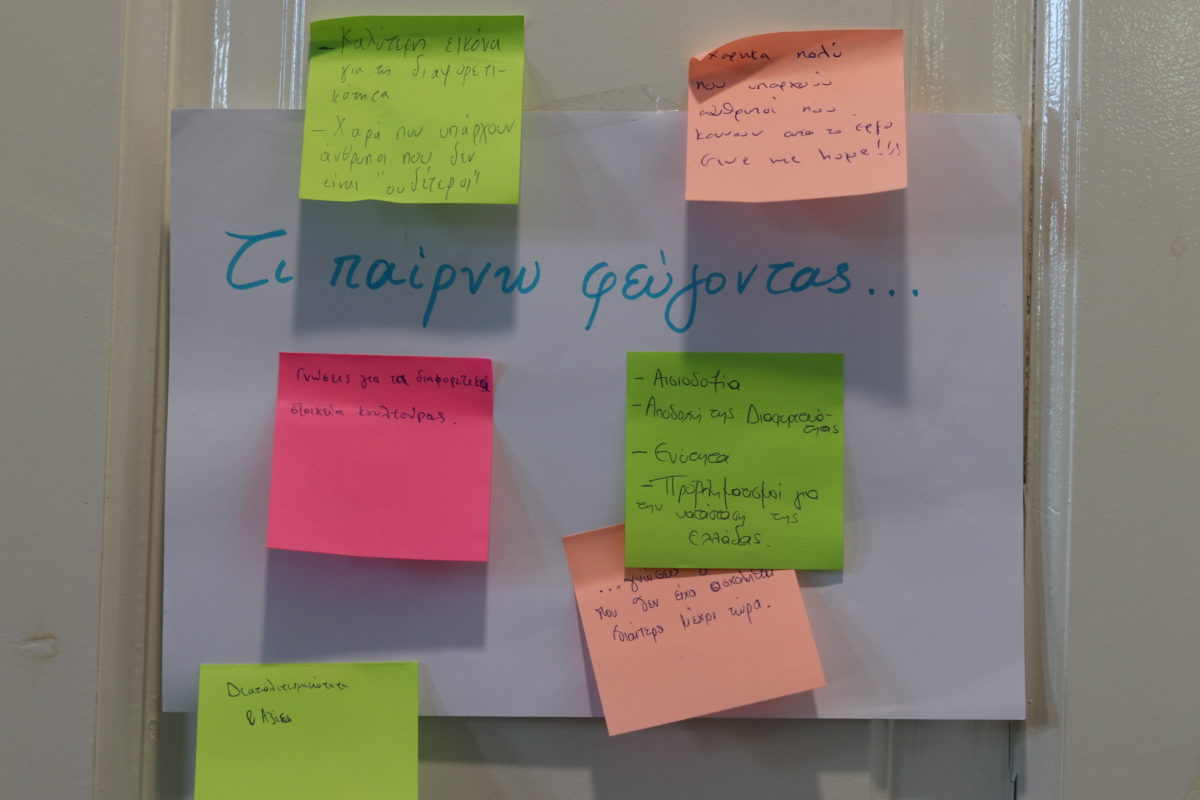 - Καλύτερη εικόνα
για τη διαφορετι-
κότητα
- Χαρά που υπάρχουν
άνθρωποι που δεν
είναι "ουδέτεροι"
Χάρηκα πολύ
που υπάρχουν
άνθρωποι που
κάνουν αυτό το έργο
Give me hope!!!
Τι παίρνω φεύγοντας...
Γνώσεις για τα διαφορετικά
στοιχεία κουλτούρας.
- Αισιοδοξία
- Αποδοχή της Διαφορετικό-
τητας
- Ενότητα
- Προβληματισμοί για
την κατάσταση της
Ελλάδας.
...γνώσεις
που δεν είχα ασχοληθεί
ιδιαίτερα μέχρι τώρα.
Διαπολιτισμικότητα
& Αξίες